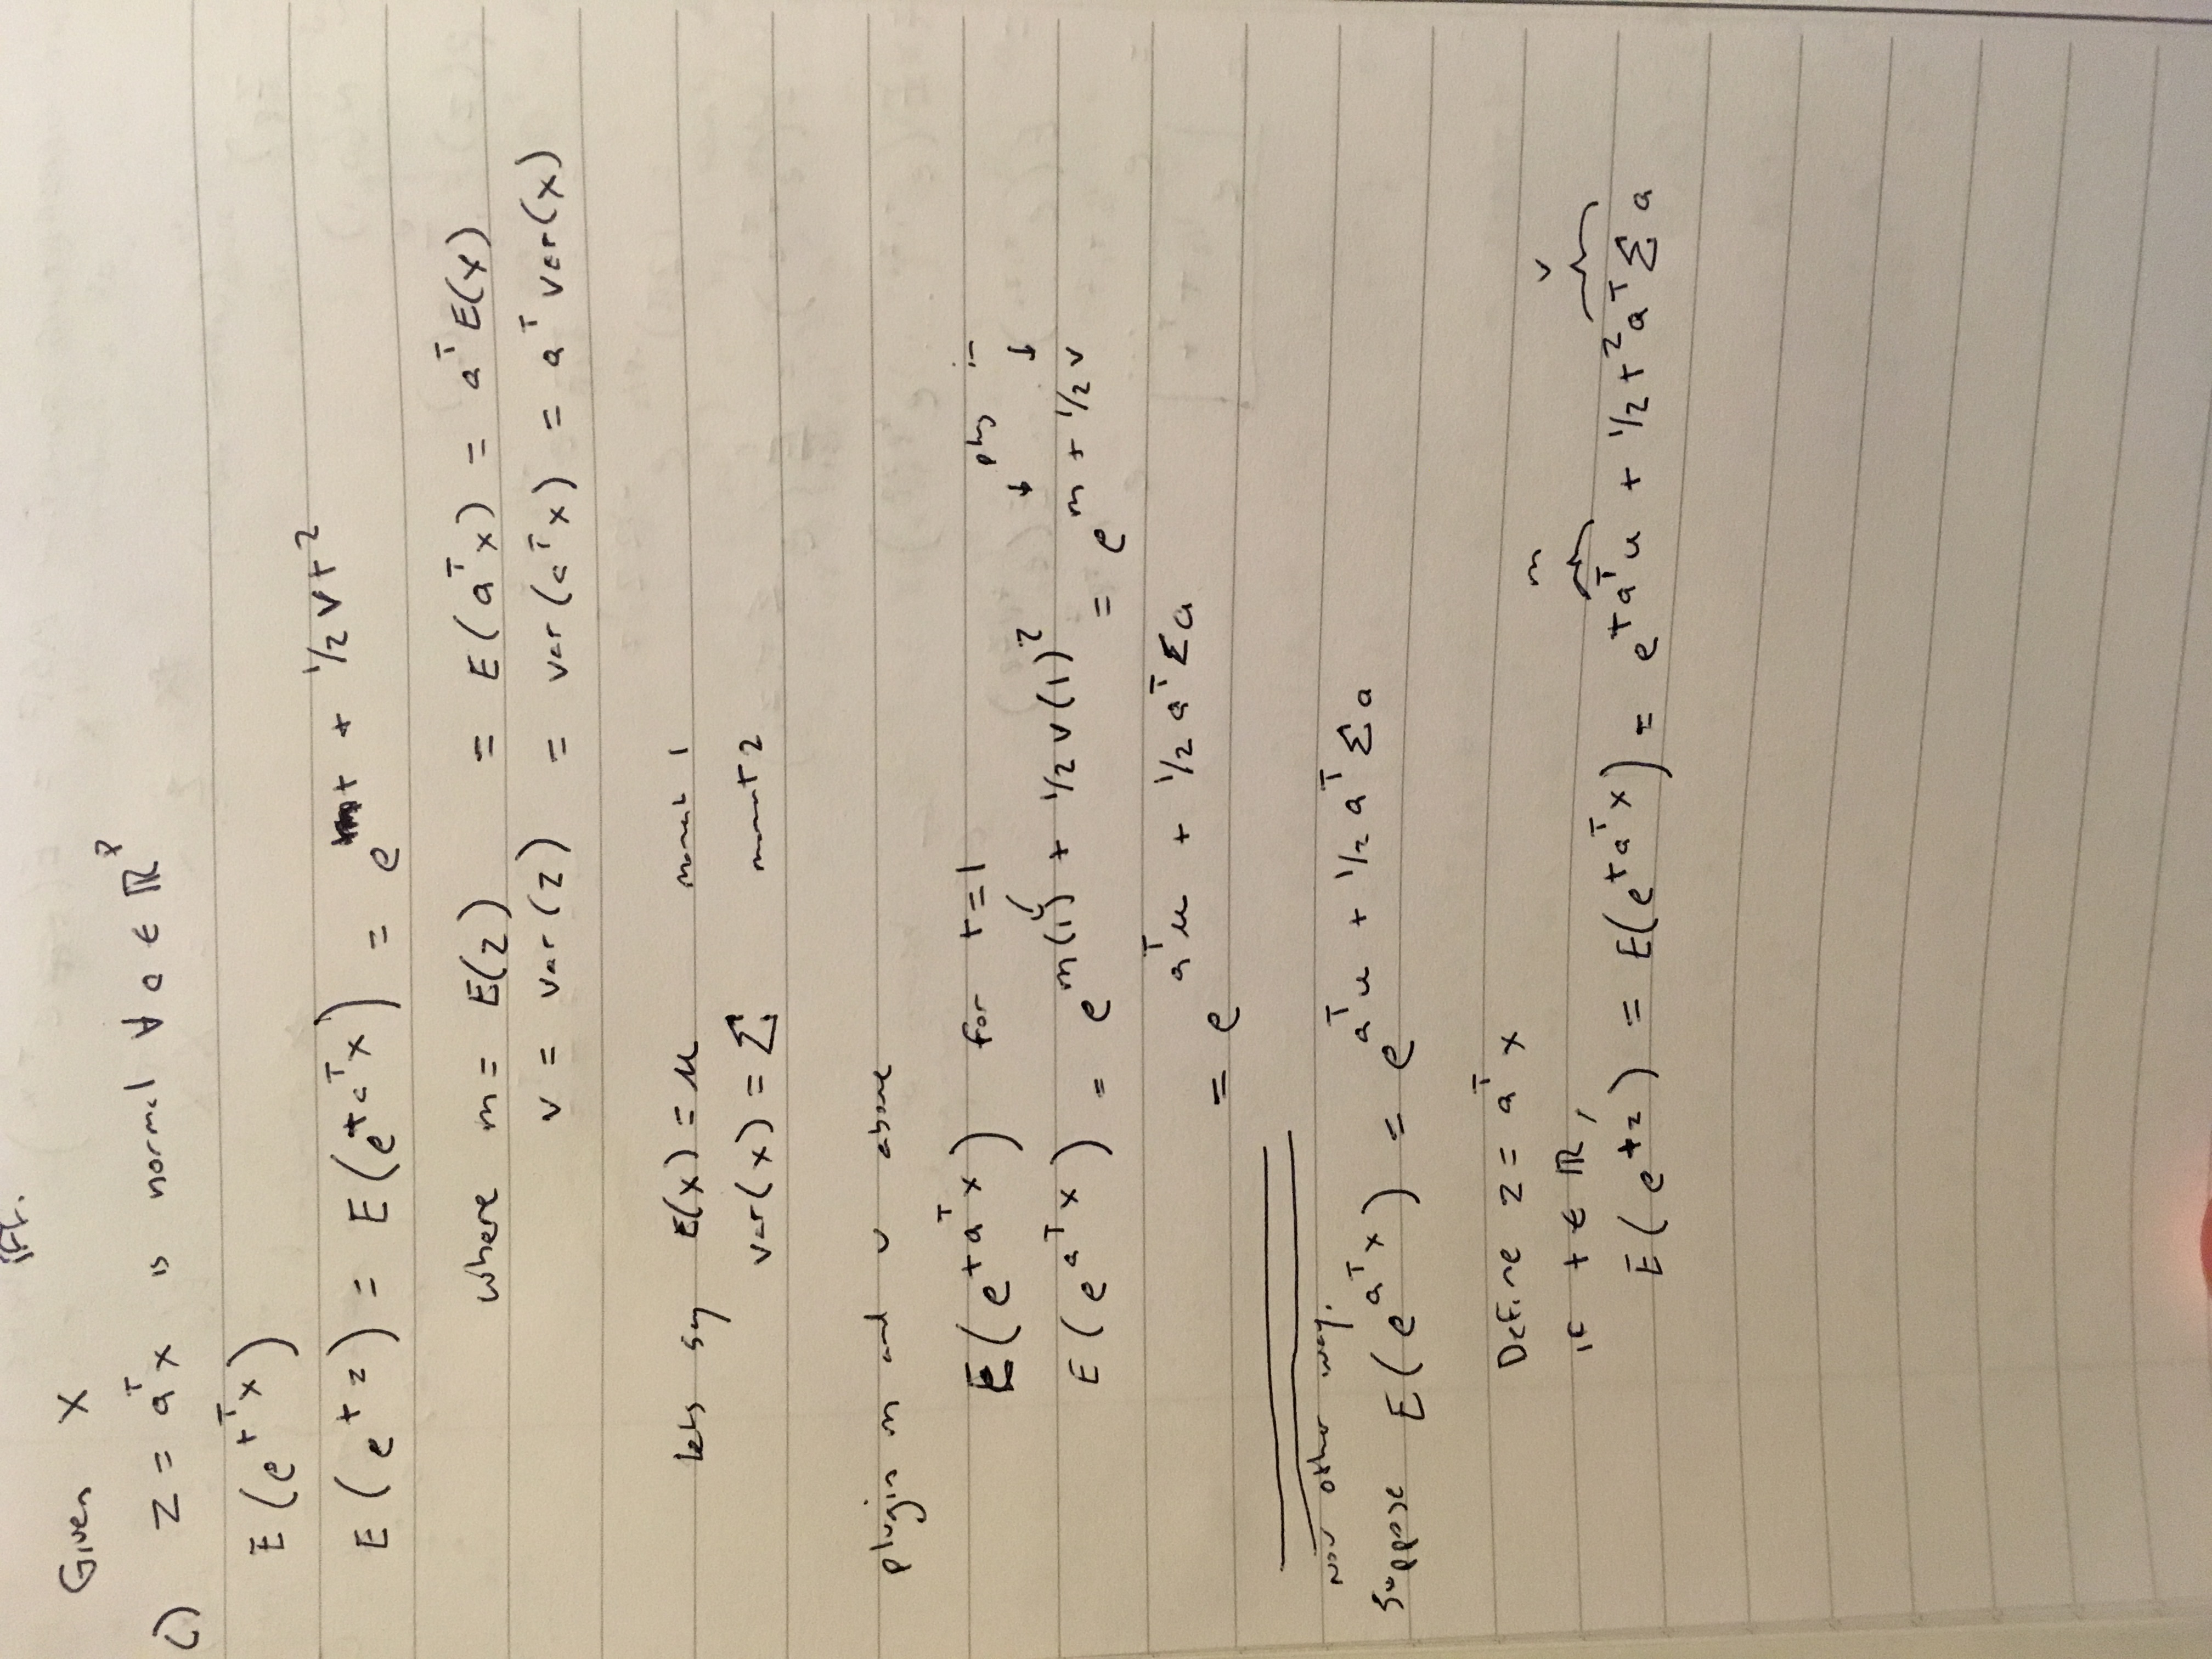 iff.
Given X
c) z = aᵀx is normal ∀ a ∈ ℝᴾ
E(e^{tᵀx})
E(e^{tz}) = E(e^{taᵀx}) = e^{mt + 1/2 vt²}
where m = E(z) = E(aᵀx) = aᵀE(x)
v = var(z) = var(aᵀx) = aᵀ var(x)
lets say E(x) = μ moment 1
var(x) = Σ moment 2
plugin m and v above
E(e^{taᵀx}) for t=1
plug in
↓ ↓
E(e^{aᵀx}) = e^{m(1) + 1/2 v(1)²} = e^{m + 1/2 v}
= e^{aᵀμ + 1/2 aᵀΣa}
Now other way.
Suppose E(e^{aᵀx}) = e^{aᵀμ + 1/2 aᵀΣa}
Define z = aᵀx
m v
if t ∈ ℝ,
E(e^{tz}) = E(e^{taᵀx}) = e^{taᵀμ + 1/2 t²aᵀΣa}